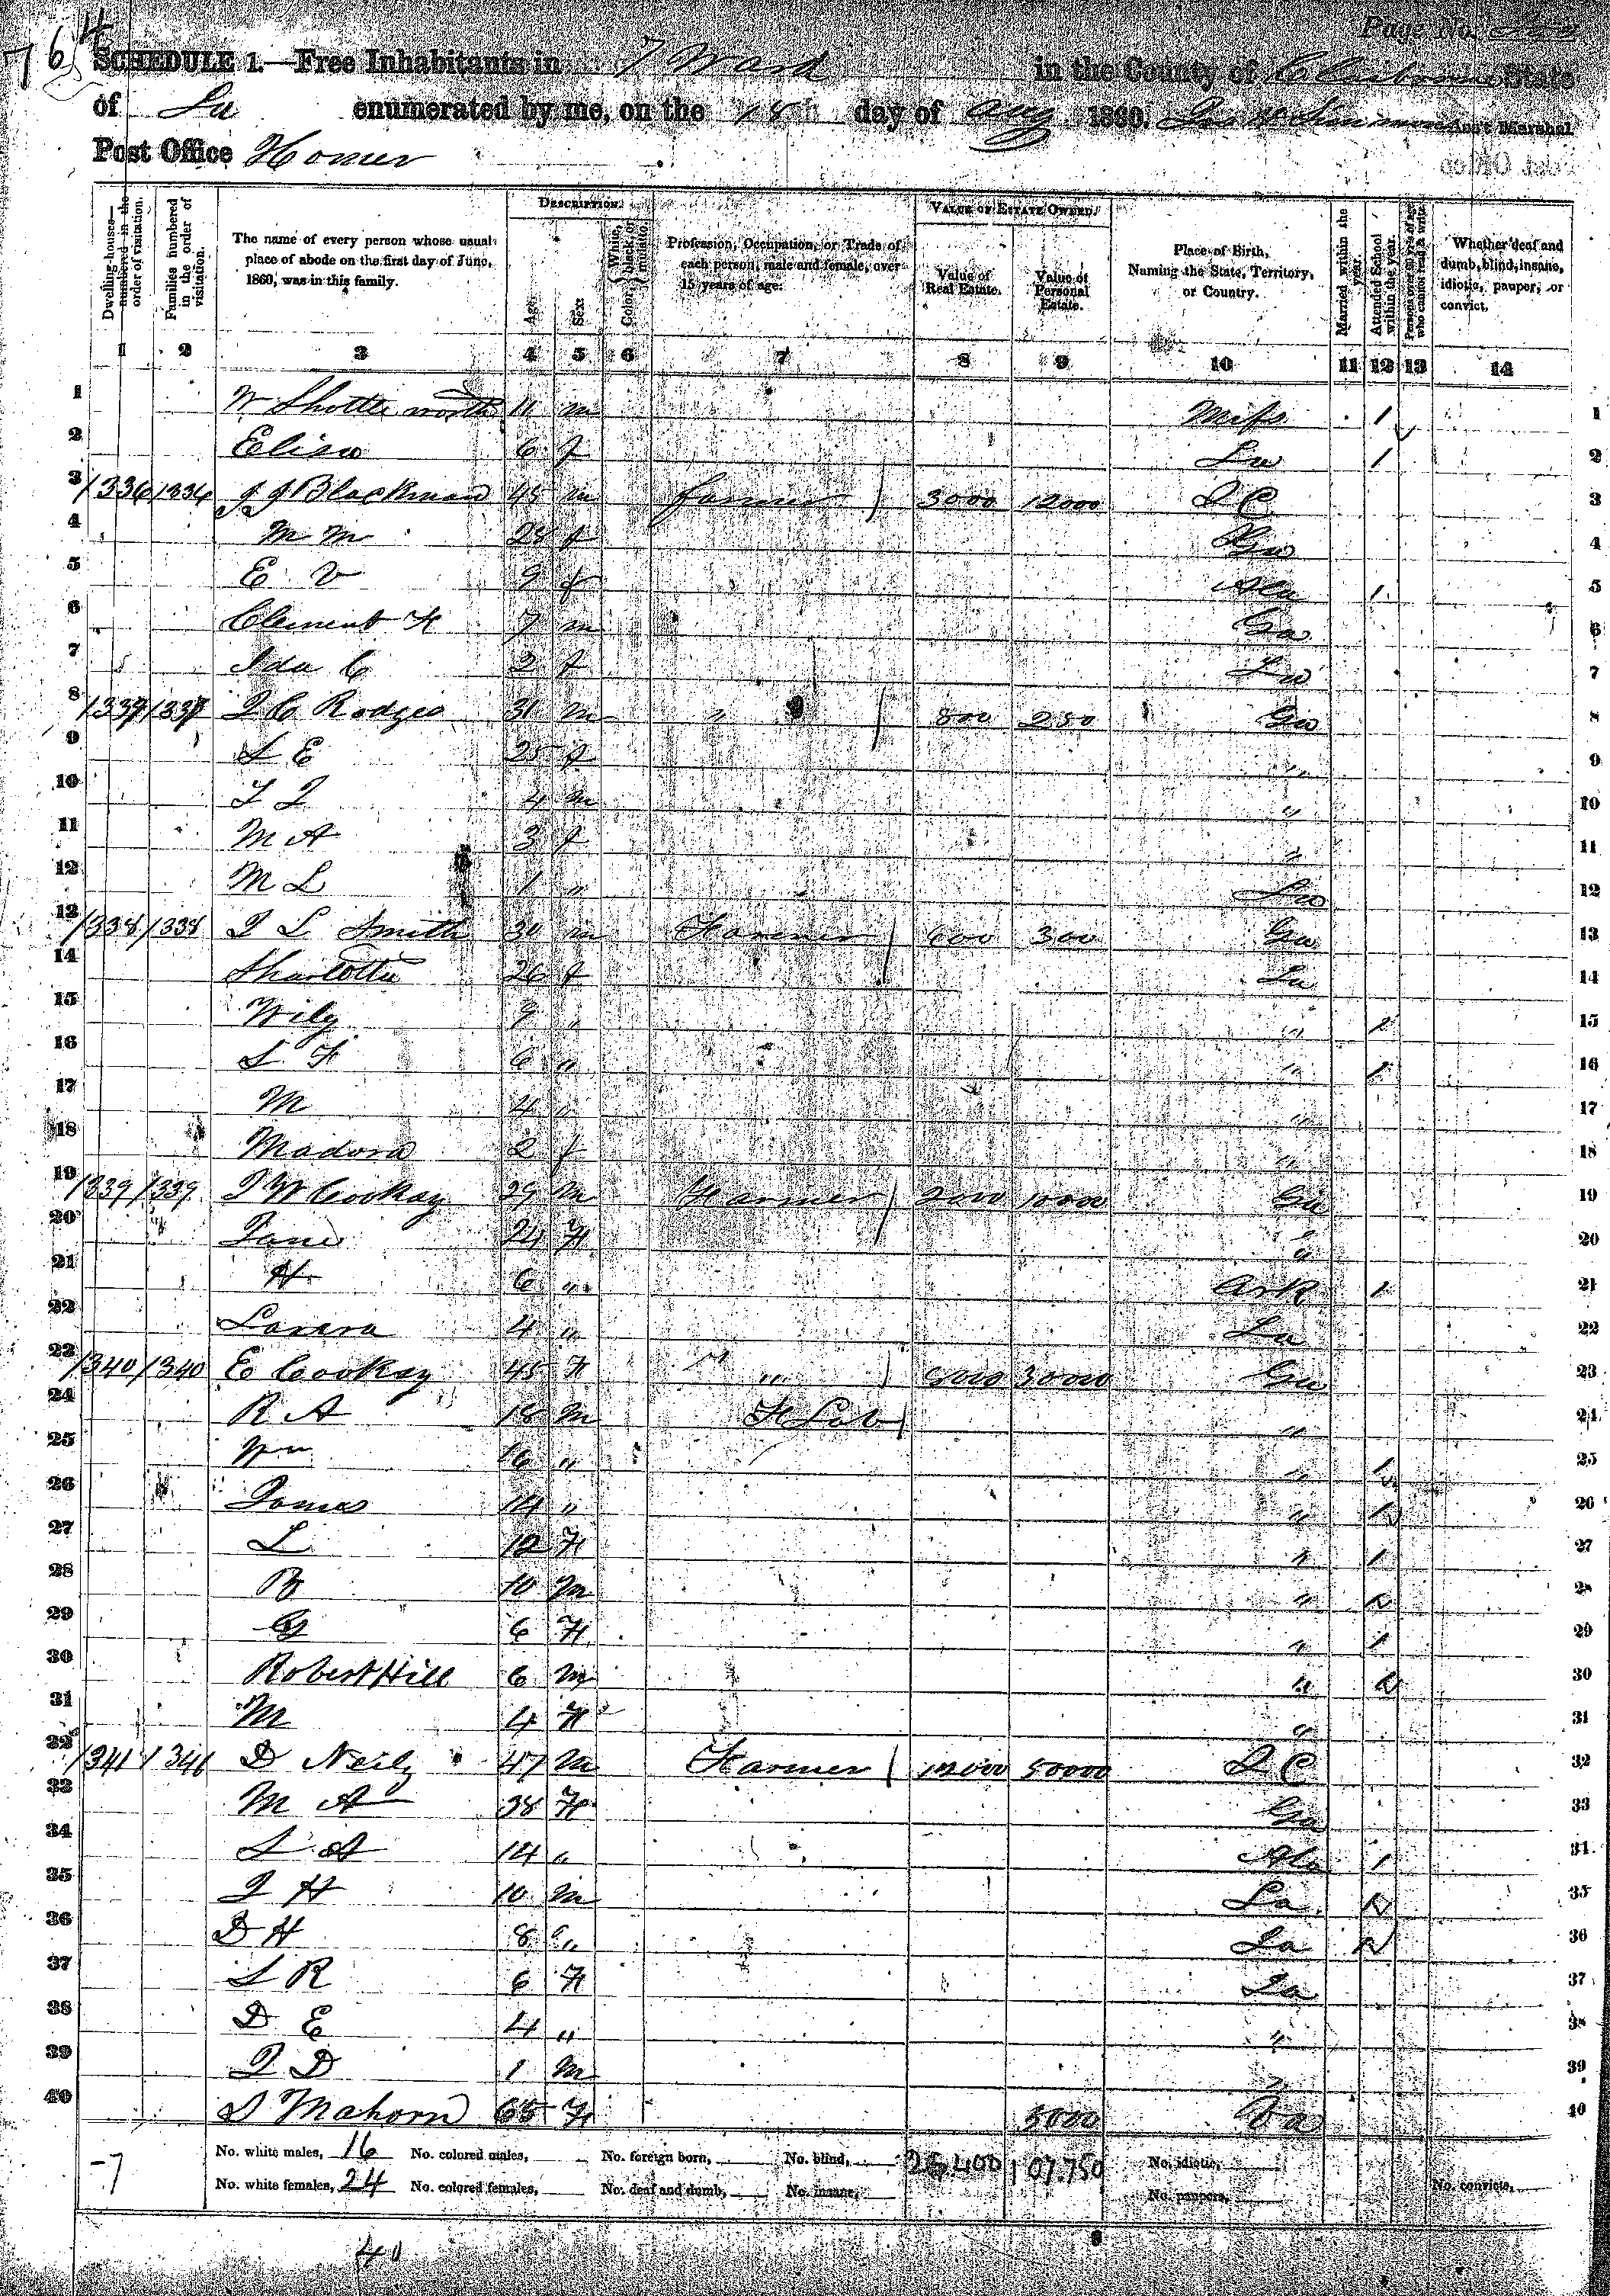 764
Page No.
SCHEDULE 1.—Free Inhabitants in 7 Ward in the County of Claiborne State
of La enumerated by me, on the 18th day of Aug 1860. Ass't Marshal
Post Office Homer
Dwelling-houses—numbered in the order of visitation.
Families numbered in the order of visitation.
The name of every person whose usual place of abode on the first day of June, 1860, was in this family.
DESCRIPTION.
Age.
Sex.
Color, {White, black, or mulatto.
Profession, Occupation, or Trade of each person, male and female, over 15 years of age.
VALUE OF ESTATE OWNED.
Value of Real Estate.
Value of Personal Estate.
Place of Birth, Naming the State, Territory, or Country.
Married within the year.
Attended School within the year.
Persons over 20 y'rs of age who cannot read & write.
Whether deaf and dumb, blind, insane, idiotic, pauper, or convict.
1 2 3 4 5 6 7 8 9 10 11 12 13 14
1 W Shottleworth 11 m Miss 1 1
2 Elisa 6 f La 1 2
3 1336 1336 J J Blackman 45 m farmer 3000 12000 S C 3
4 M M 28 f Ga 4
5 E V 9 f Ala 1 5
6 Clement H 7 m Ga 6
7 Ida C 2 f La 7
8 1337 1337 J C Rodges 31 m " 800 250 Ga 8
9 S E 25 f " 9
10 4 m " 10
11 M A 3 f " 11
12 M L 1 " La 12
13 1338 1338 J L Smith 30 m Farmer 600 300 Ga 13
14 Sharlotta 26 f La 14
15 Wily 9 " " 1 15
16 S F 6 " " 1 16
17 M 4 " " 17
18 Madora 2 f " 18
19 1339 1339 J W Cooksy 29 M Farmer 2000 10000 Ga 19
20 Jane 24 F " 20
21 H 6 " Ark 1 21
22 Lavera 4 " La 22
23 1340 1340 E Cooksy 45 F " 30000 Ga 23
24 R A 18 M F Lab " 24
25 Wm 16 " " 1 25
26 James 14 " " 1 26
27 L 12 F " 1 27
28 B 10 M " 1 28
29 G 6 F " 1 29
30 Robert Hill 6 M " 1 30
31 M 4 F " 31
32 1341 1341 D Neily 47 M Farmer 12000 50000 S C 32
33 M A 38 F Ga 33
34 S A 14 " Ala 1 34
35 J H 10 M La 1 35
36 D H 8 " La 1 36
37 S R 6 F La 37
38 D E 4 " " 38
39 J D 1 M " 39
40 S Mahorn 65 F 5000 Va 40
-7
No. white males, 16 No. colored males, No. foreign born, No. blind, 26,400 107,750 No. idiotic,
No. white females, 24 No. colored females, No. deaf and dumb, No. insane, No. paupers, No. convicts,
40